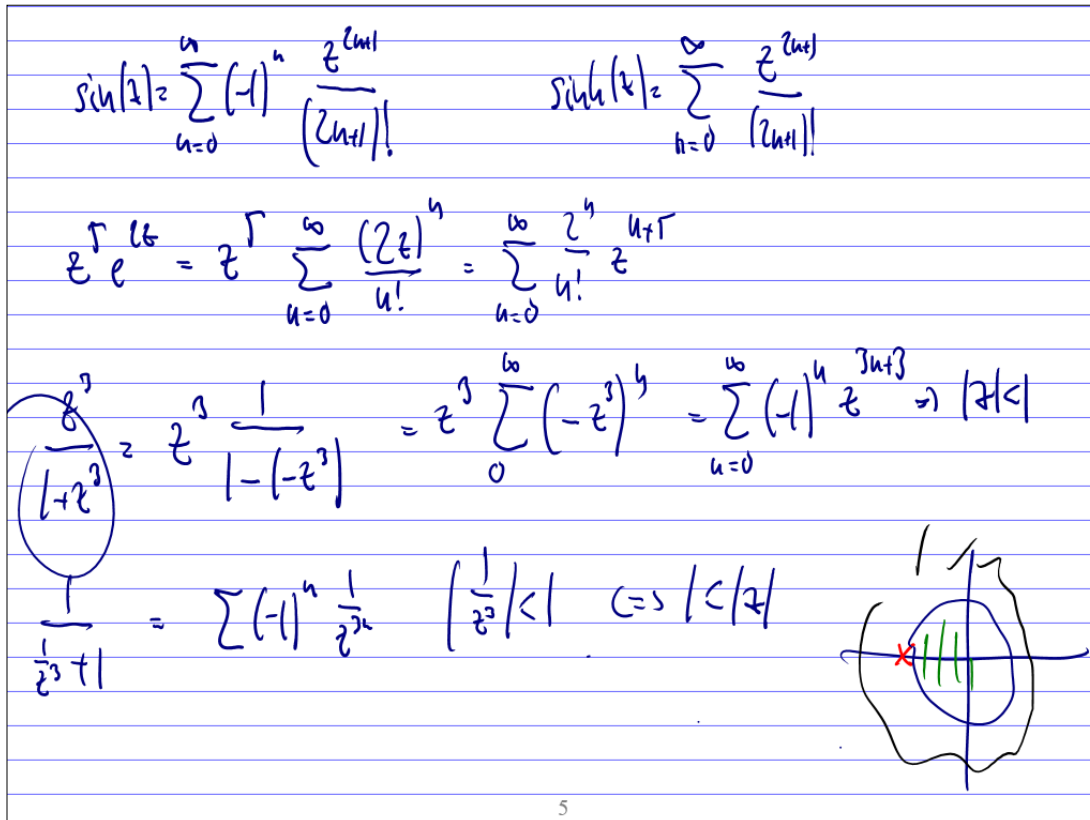 sin(z) = ∑_{n=0}^{∞} (-1)^n z^{2n+1}/(2n+1)!    sinh(z) = ∑_{n=0}^{∞} z^{2n+1}/(2n+1)!
z^5 e^{2z} = z^5 ∑_{n=0}^{∞} (2z)^n/n! = ∑_{n=0}^{∞} 2^n/n! z^{n+5}
z^3/(1+z^3) = z^3 1/(1-(-z^3)) = z^3 ∑_{0}^{∞} (-z^3)^n = ∑_{n=0}^{∞} (-1)^n z^{3n+3} => |z|<1
1/(1/z^3 + 1) = ∑ (-1)^n 1/z^{3n}    |1/z^3|<1 <=> 1<|z|
5